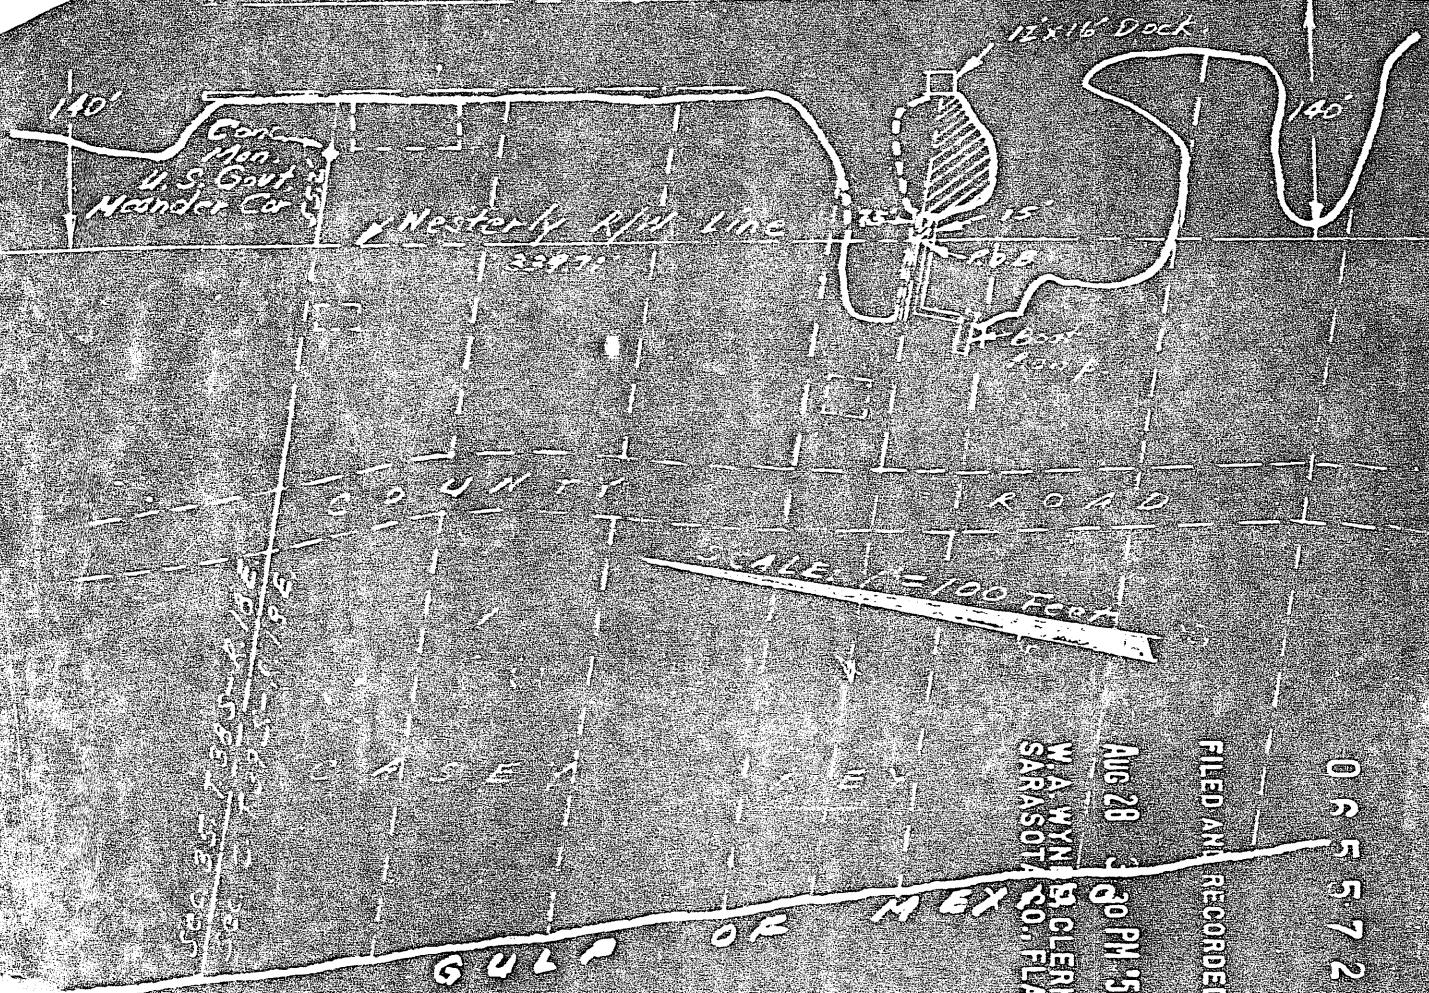 12'x16' Dock
140'
140'
Conc.
Mon.
U.S. Govt.
Meander Cor
Westerly R/W Line
15'
P.O.B.
Boat
Ramp
COUNTY ROAD
SCALE, 1"=100 Feet
CASEY KEY
GULF OF MEXICO
065572
FILED AND RECORDED
AUG 28 3 30 PM
W.A. WYNNE CLERK
SARASOTA CO., FLA